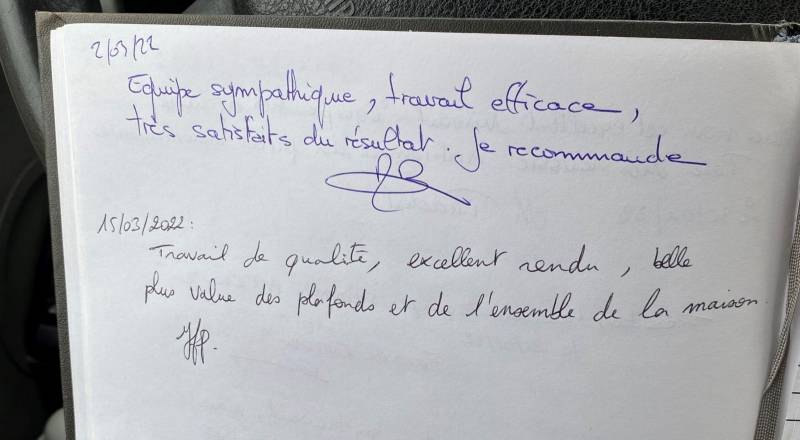 2/03/22
Equipe sympathique, travail efficace,
très satisfaits du résultat. Je recommande
15/03/2022:
Travail de qualité, excellent rendu, belle
plus value des plafonds et de l'ensemble de la maison.